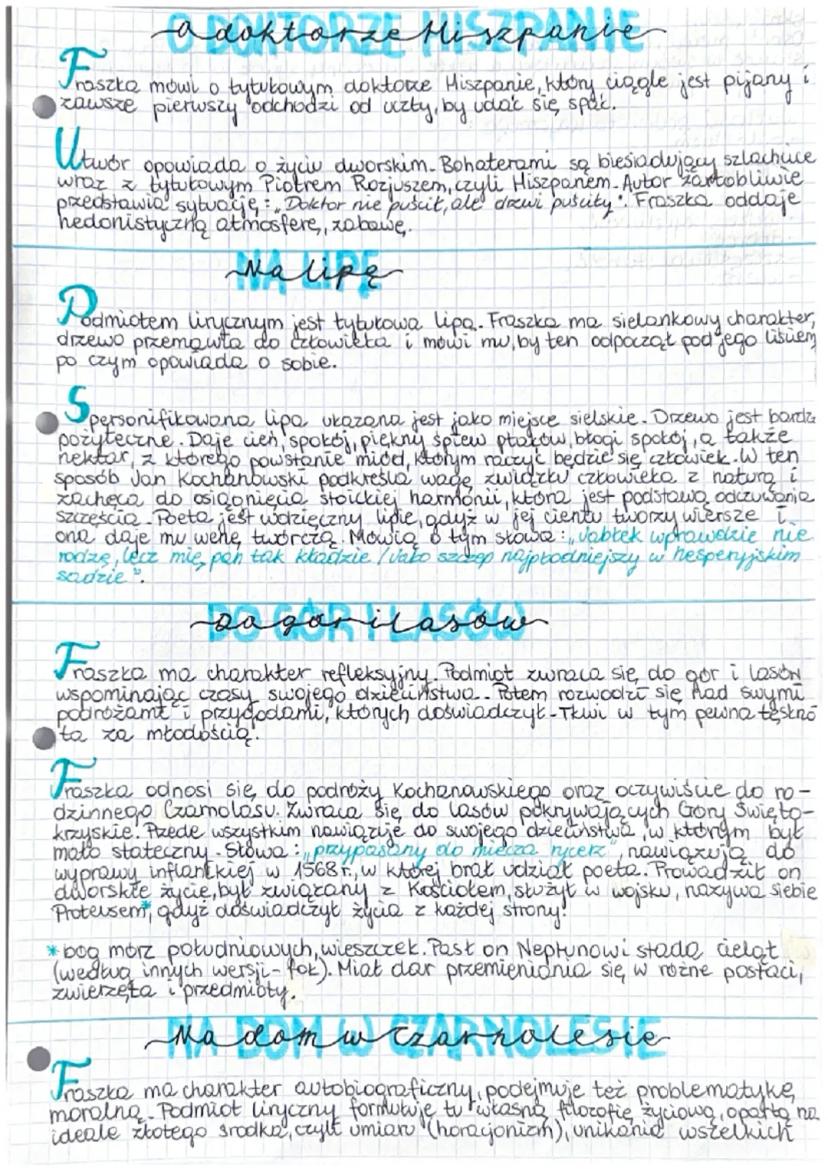 O doktorze Hiszpanie
Fraszka mówi o tytułowym doktorze Hiszpanie, który ciągle jest pijany i
zawsze pierwszy odchodzi od uczty, by udać się spać.
Utwór opowiada o życiu dworskim. Bohaterami są biesiadujący szlachcice
wraz z tytułowym Piotrem Rozjuszem, czyli Hiszpanem. Autor żartobliwie
przedstawia sytuację: „Doktor nie puścił, ale drzwi puściły". Fraszka oddaje
hedonistyczną atmosferę, zabawę.
Na lipę
Podmiotem lirycznym jest tytułowa lipa. Fraszka ma sielankowy charakter,
drzewo przemawia do człowieka i mówi mu, by ten odpoczął pod jego liściem,
po czym opowiada o sobie.
Spersonifikowana lipa ukazana jest jako miejsce sielskie. Drzewo jest bardz
pożyteczne. Daje cień, spokój, piękny śpiew ptaków, błogi spokój, a także
nektar, z którego powstanie miód, którym raczyć będzie się człowiek. W ten
sposób Jan Kochanowski podkreśla wagę związku człowieka z naturą i
zachęca do osiągnięcia stoickiej harmonii, która jest podstawą odczuwania
szczęścia. Poeta jest wdzięczny lipie, gdyż w jej cieniu tworzy wiersze i
ona daje mu wenę twórczą. Mówią o tym słowa: „Jabłek wprawdzie nie
rodzę, lecz mię pan tak kładzie / Jako szczep najpłodniejszy w hesperyjskim
sadzie".
Do gór i lasów
Fraszka ma charakter refleksyjny. Podmiot zwraca się do gór i lasów
wspominając czasy swojego dzieciństwa. Potem rozwodzi się nad swymi
podróżami i przygodami, których doświadczył. Tkwi w tym pewna tęskno
ta za młodością.
Fraszka odnosi się do podróży Kochanowskiego oraz oczywiście do ro-
dzinnego Czarnolasu. Zwraca się do lasów pokrywających Góry Święto-
krzyskie. Przede wszystkim nawiązuje do swojego dzieciństwa, w którym był
mało stateczny. Słowa: „przypasany do miecza rycerz", nawiązują do
wyprawy inflanckiej w 1568 r., w której brał udział poeta. Prowadził on
dworskie życie, był związany z Kościołem, służył w wojsku, nazywa siebie
Proteusem*, gdyż doświadczył życia z każdej strony!
*bóg mórz południowych, wieszczek. Pasł on Neptunowi stada cieląt
(według innych wersji - fok). Miał dar przemieniania się w różne postaci,
zwierzęta i przedmioty.
Na dom w Czarnolesie
Fraszka ma charakter autobiograficzny, podejmuje też problematykę
moralną. Podmiot liryczny formułuje tu własną filozofię życiową, opartą na
ideale złotego środka, czyli umiaru (horacjonizm), unikania wszelkich